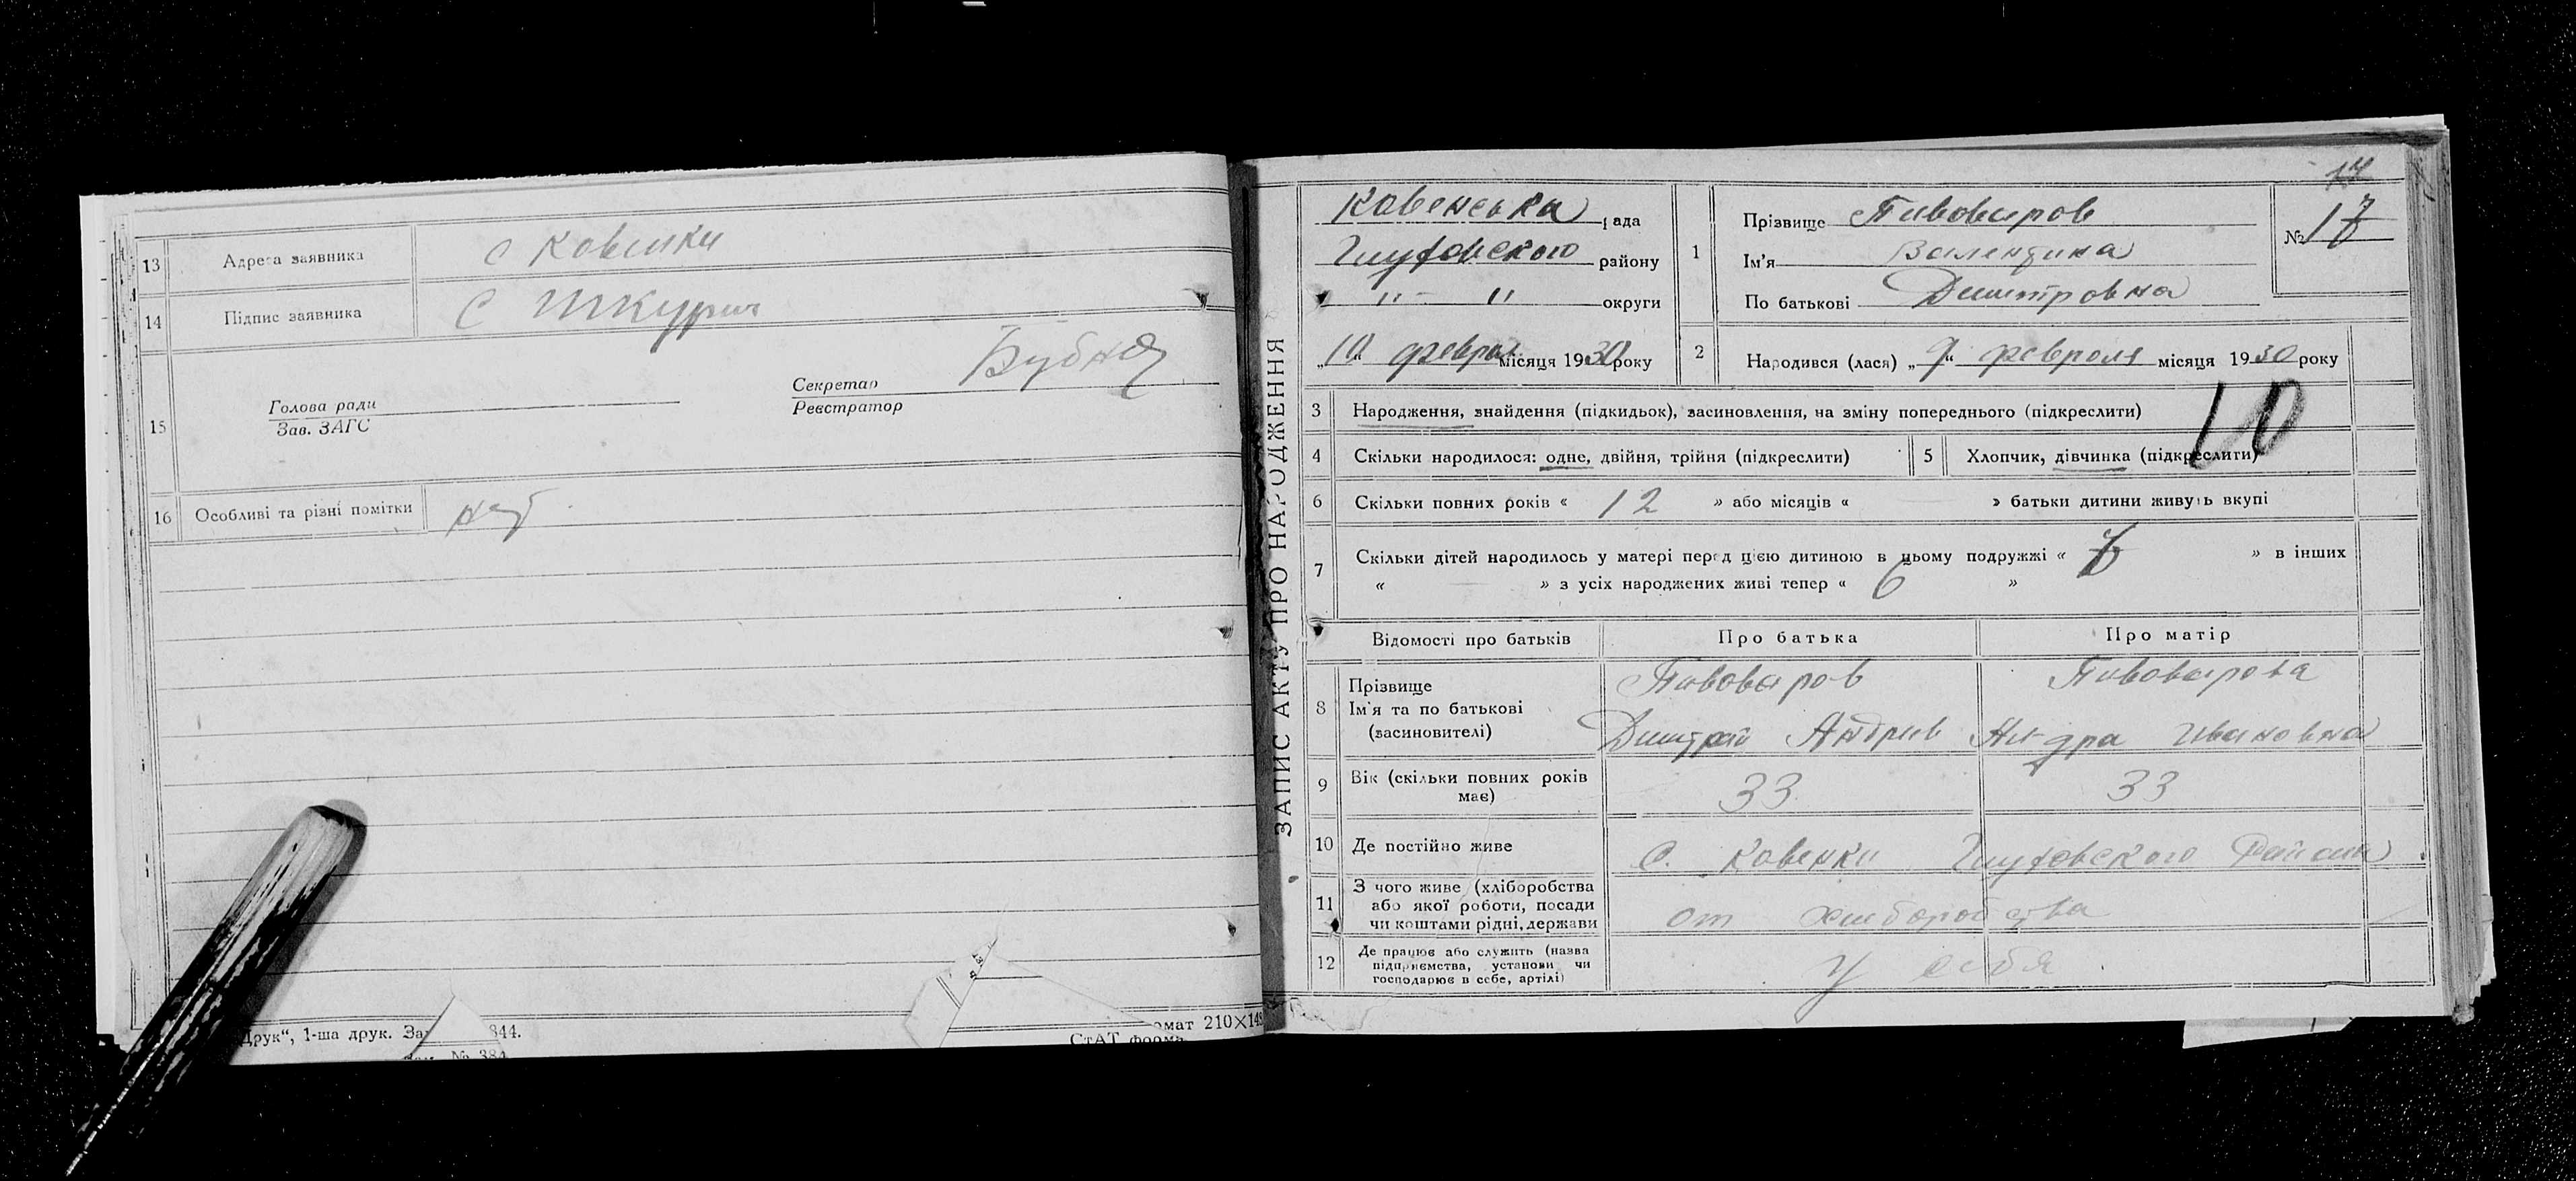 13 Адреса заявника с Ковинки
14 Підпис заявника С Шкурин
15 Голова ради
Зав. ЗАГС
Секретар
Реєстратор
16 Особливі та різні помітки нет
Друк“, 1-ша друк. За 844.
№ 384
омат 210×148
СтАТ форма
ЗАПИС АКТУ ПРО НАРОДЖЕННЯ
Ковенська рада
району
" — " округи
„10“ феврал місяця 1930 року
1 Прізвище Пивоваров
Ім'я Валентина
По батькові Дмитровна
17
№ 17
2 Народився (лася) „9“ февроля місяця 1930 року
10
3 Народження, знайдення (підкидьок), засиновлення, на зміну попереднього (підкреслити)
4 Скільки народилося: одне, двійня, трійня (підкреслити)
5 Хлопчик, дівчинка (підкреслити)
6 Скільки повних років « 12 » або місяців « — » батьки дитини живуть вкупі
7 Скільки дітей народилось у матері перед цією дитиною в цьому подружжі « » в інших
« — » з усіх народжених живі тепер « 6 »
Відомості про батьків Про батька Про матір
8 Прізвище
Ім'я та по батькові
(засновителі)
Пивоваров
Дмитрий Андрив
Пивоварова
Ивановна
9 Вік (скільки повних років
має)
33 33
10 Де постійно живе С. Ковенки
11 З чого живе (хліборобства
або якої роботи, посади
чи коштами рідні, держави
от хлиборобства
12 Де працює або служить (назва
підприємства, установи чи
господарює в себе, артілі)
У себя